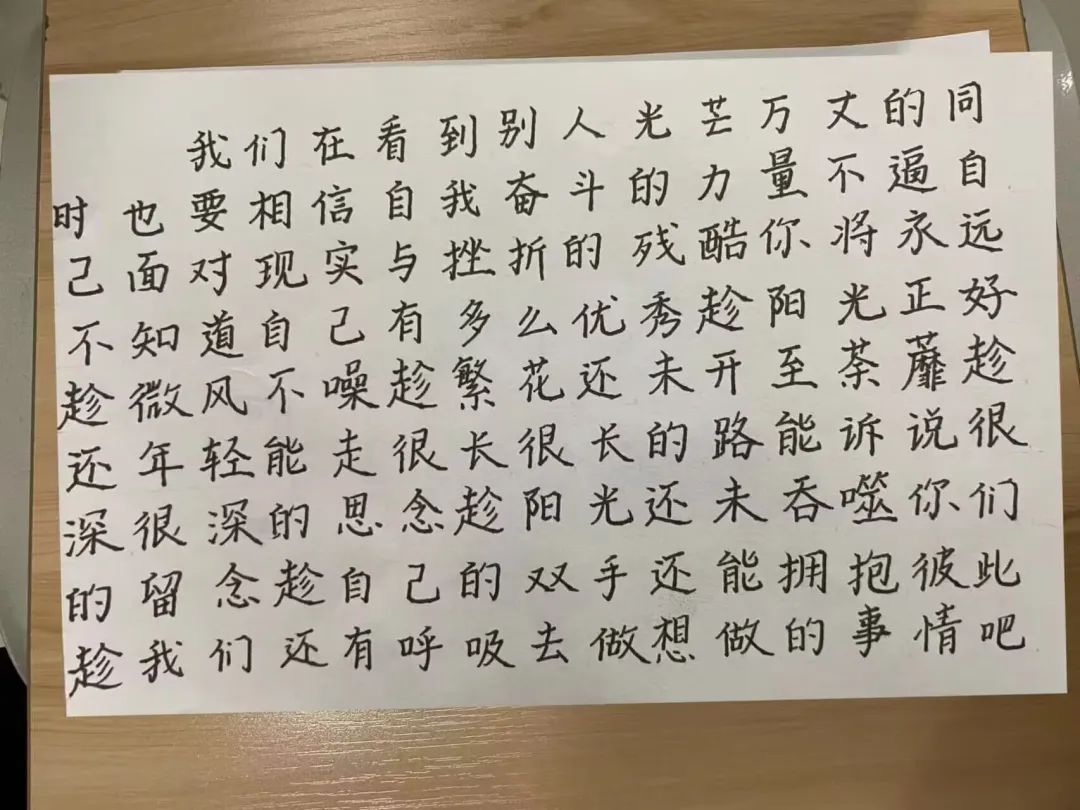 我们在看到别人光芒万丈的同
时也要相信自我奋斗的力量不逼自
己面对现实与挫折的残酷你将永远
不知道自己有多么优秀趁阳光正好
趁微风不噪趁繁花还未开至荼蘼趁
还年轻能走很长很长的路能诉说很
深很深的思念趁阳光还未吞噬你们
的留念趁自己的双手还能拥抱彼此
趁我们还有呼吸去做想做的事情吧